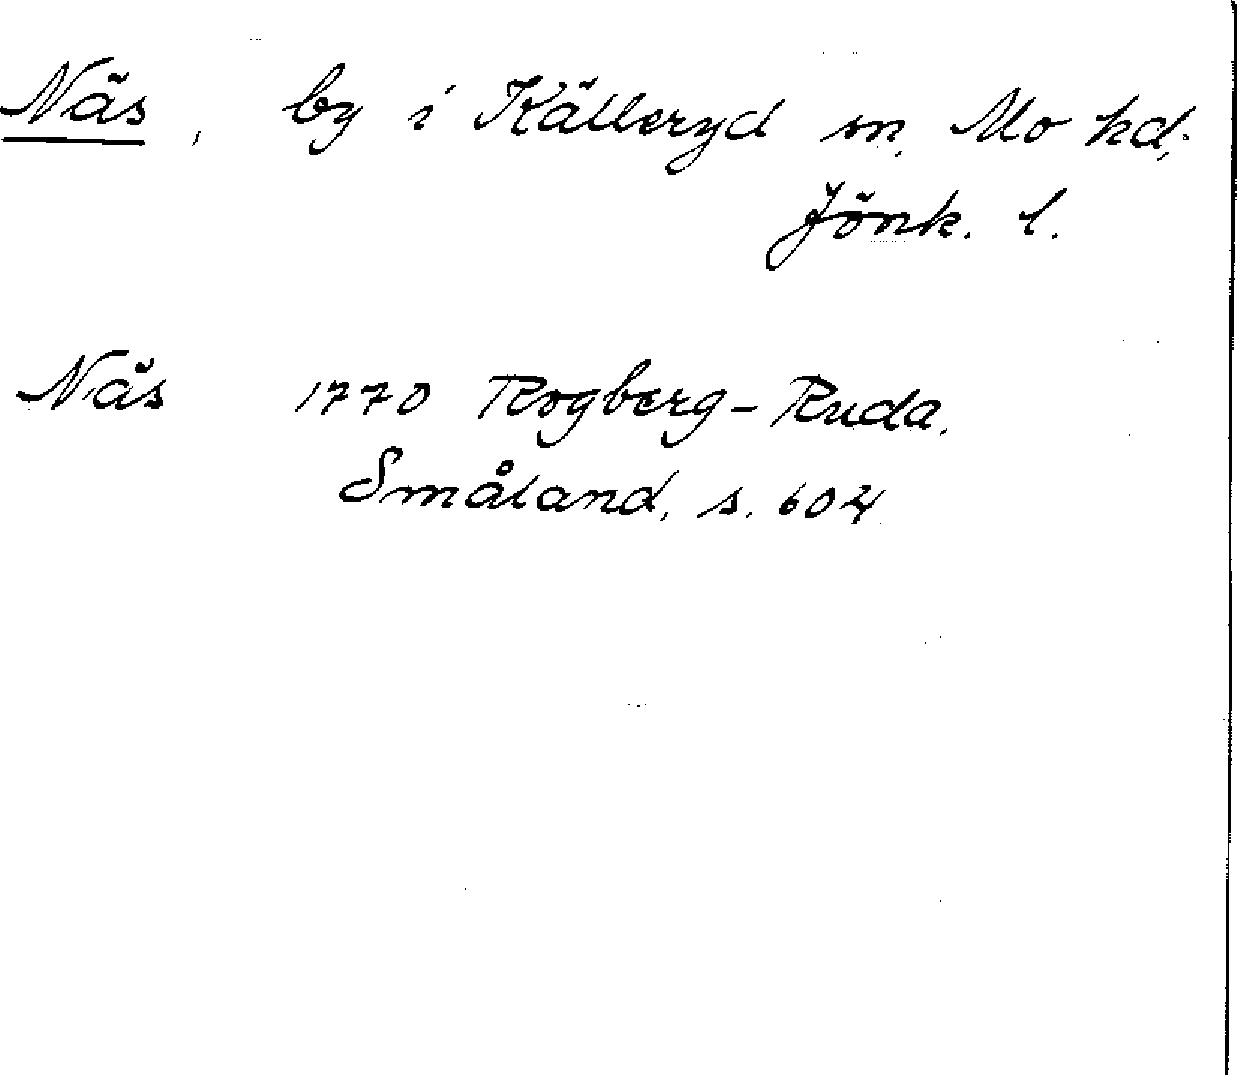 Näs, by i Källeryd sn, Mo hd,
Jönk. l.
Näs 1770 Rogberg-Ruda,
Småland, s. 604